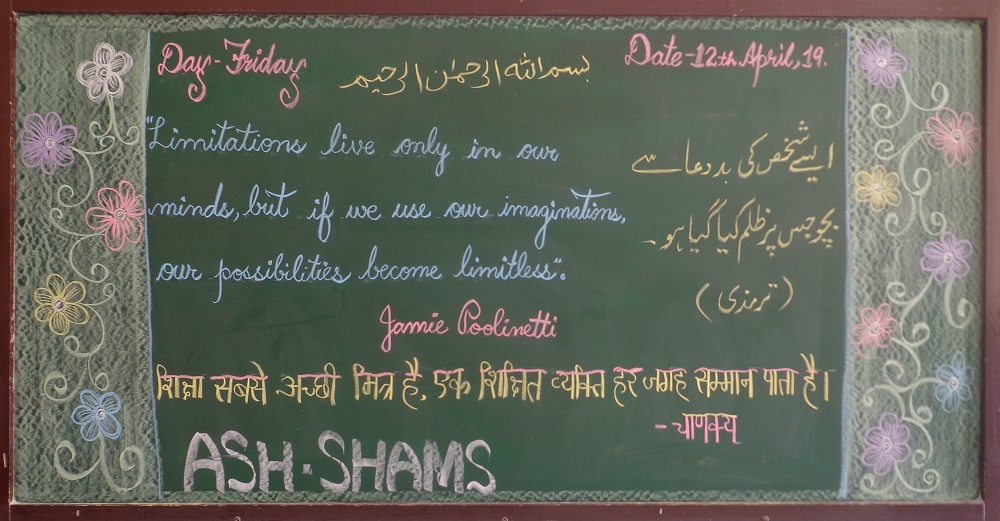 Day-Friday
بسم الله الرحمٰن الرحيم
Date-12th April, 19.
"Limitations live only in our
minds, but if we use our imaginations,
our possibilities become limitless".
Jamie Poolinetti
ایسے شخص کی بددعا سے
بچو جس پر ظلم کیا گیا ہو۔
(ترمذی)
शिक्षा सबसे अच्छी मित्र है, एक शिक्षित व्यक्ति हर जगह सम्मान पाता है।
- चाणक्य
ASH-SHAMS